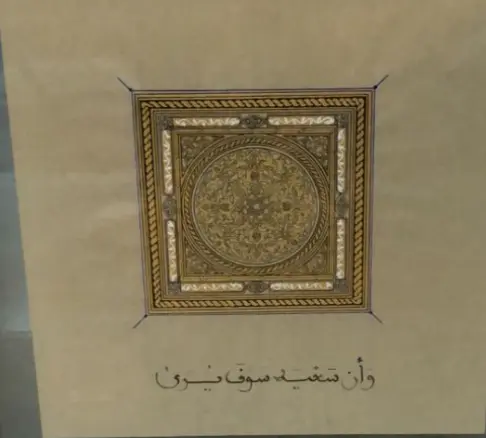 وَأَن سَعْيَه سوفَ يُرىٰ